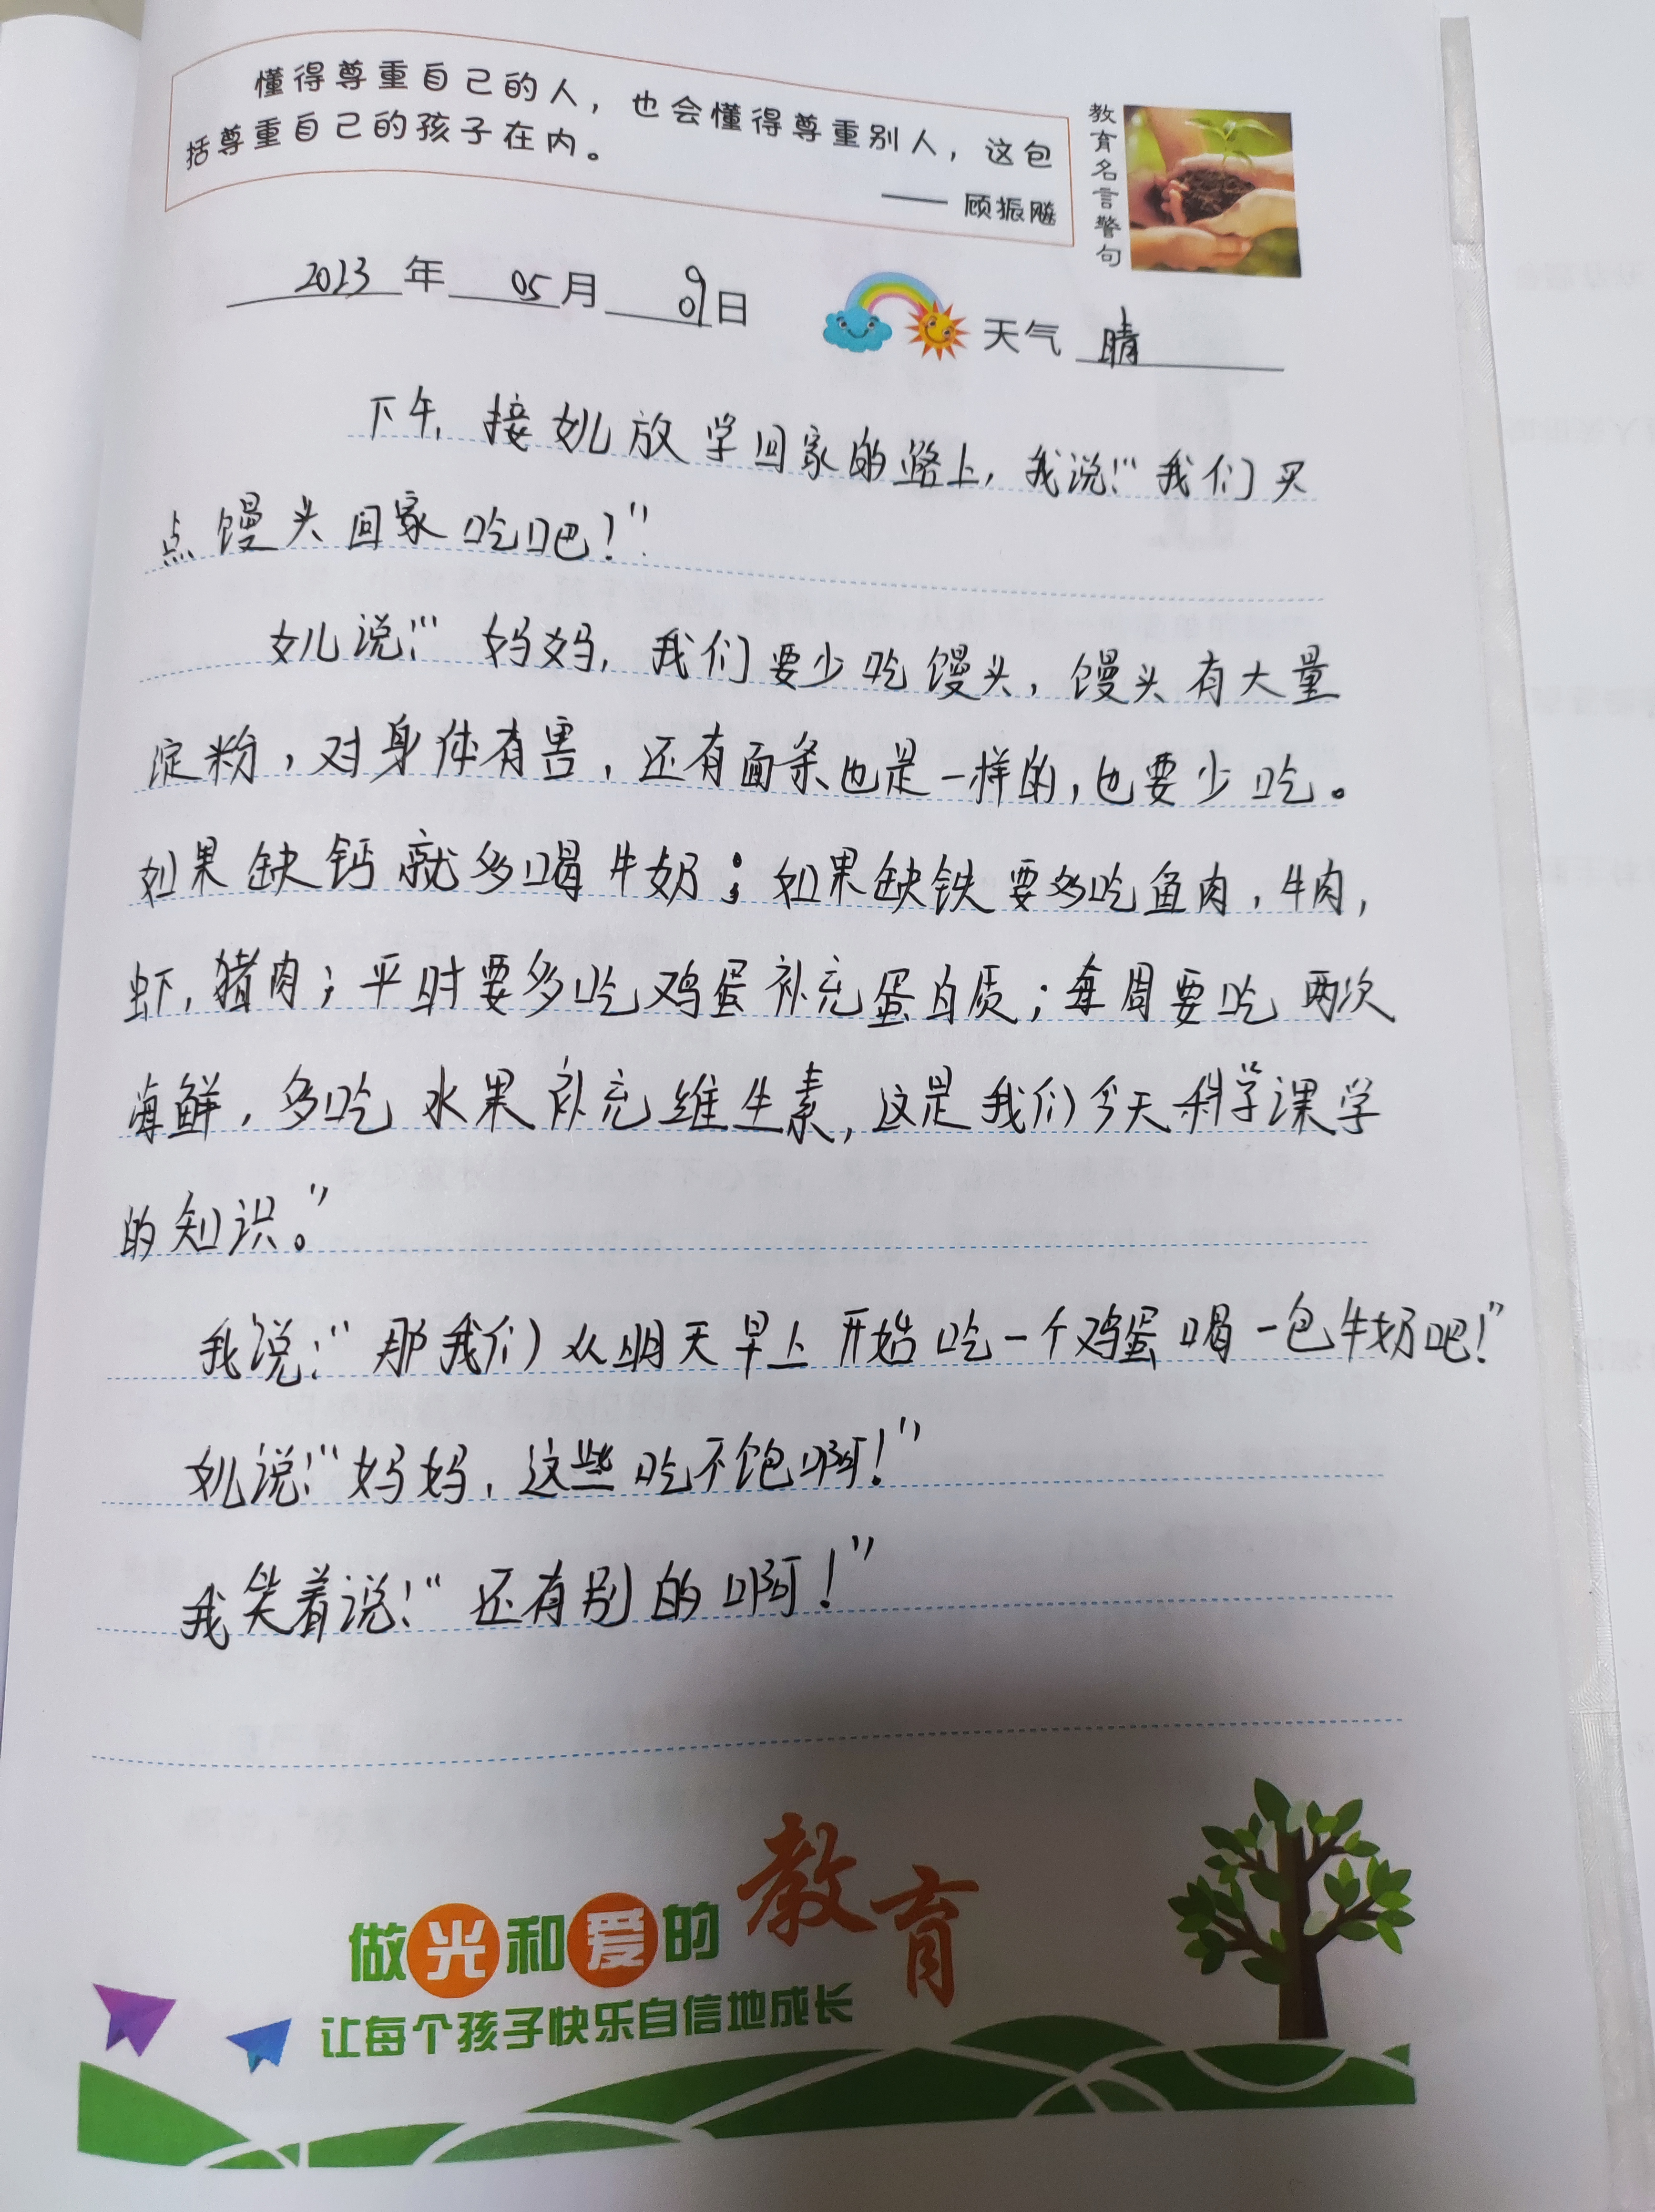 懂得尊重自己的人，也会懂得尊重别人，这包
括尊重自己的孩子在内。
—— 顾振飚
教育名言警句
2023年05月09日
天气 晴
下午，接女儿放学回家的路上，我说：“我们买
点馒头回家吃吧！”
女儿说：“妈妈，我们要少吃馒头，馒头有大量
淀粉，对身体有害，还有面条也是一样的，也要少吃。
如果缺钙就多喝牛奶；如果缺铁要多吃鱼肉，牛肉，
虾，猪肉；平时要多吃鸡蛋补充蛋白质；每周要吃两次
海鲜，多吃水果补充维生素，这是我们今天科学课学
的知识。”
我说：“那我们从明天早上开始吃一个鸡蛋喝一包牛奶吧！”
女儿说：“妈妈，这些吃不饱啊！”
我笑着说：“还有别的啊！”
做光和爱的教育
让每个孩子快乐自信地成长